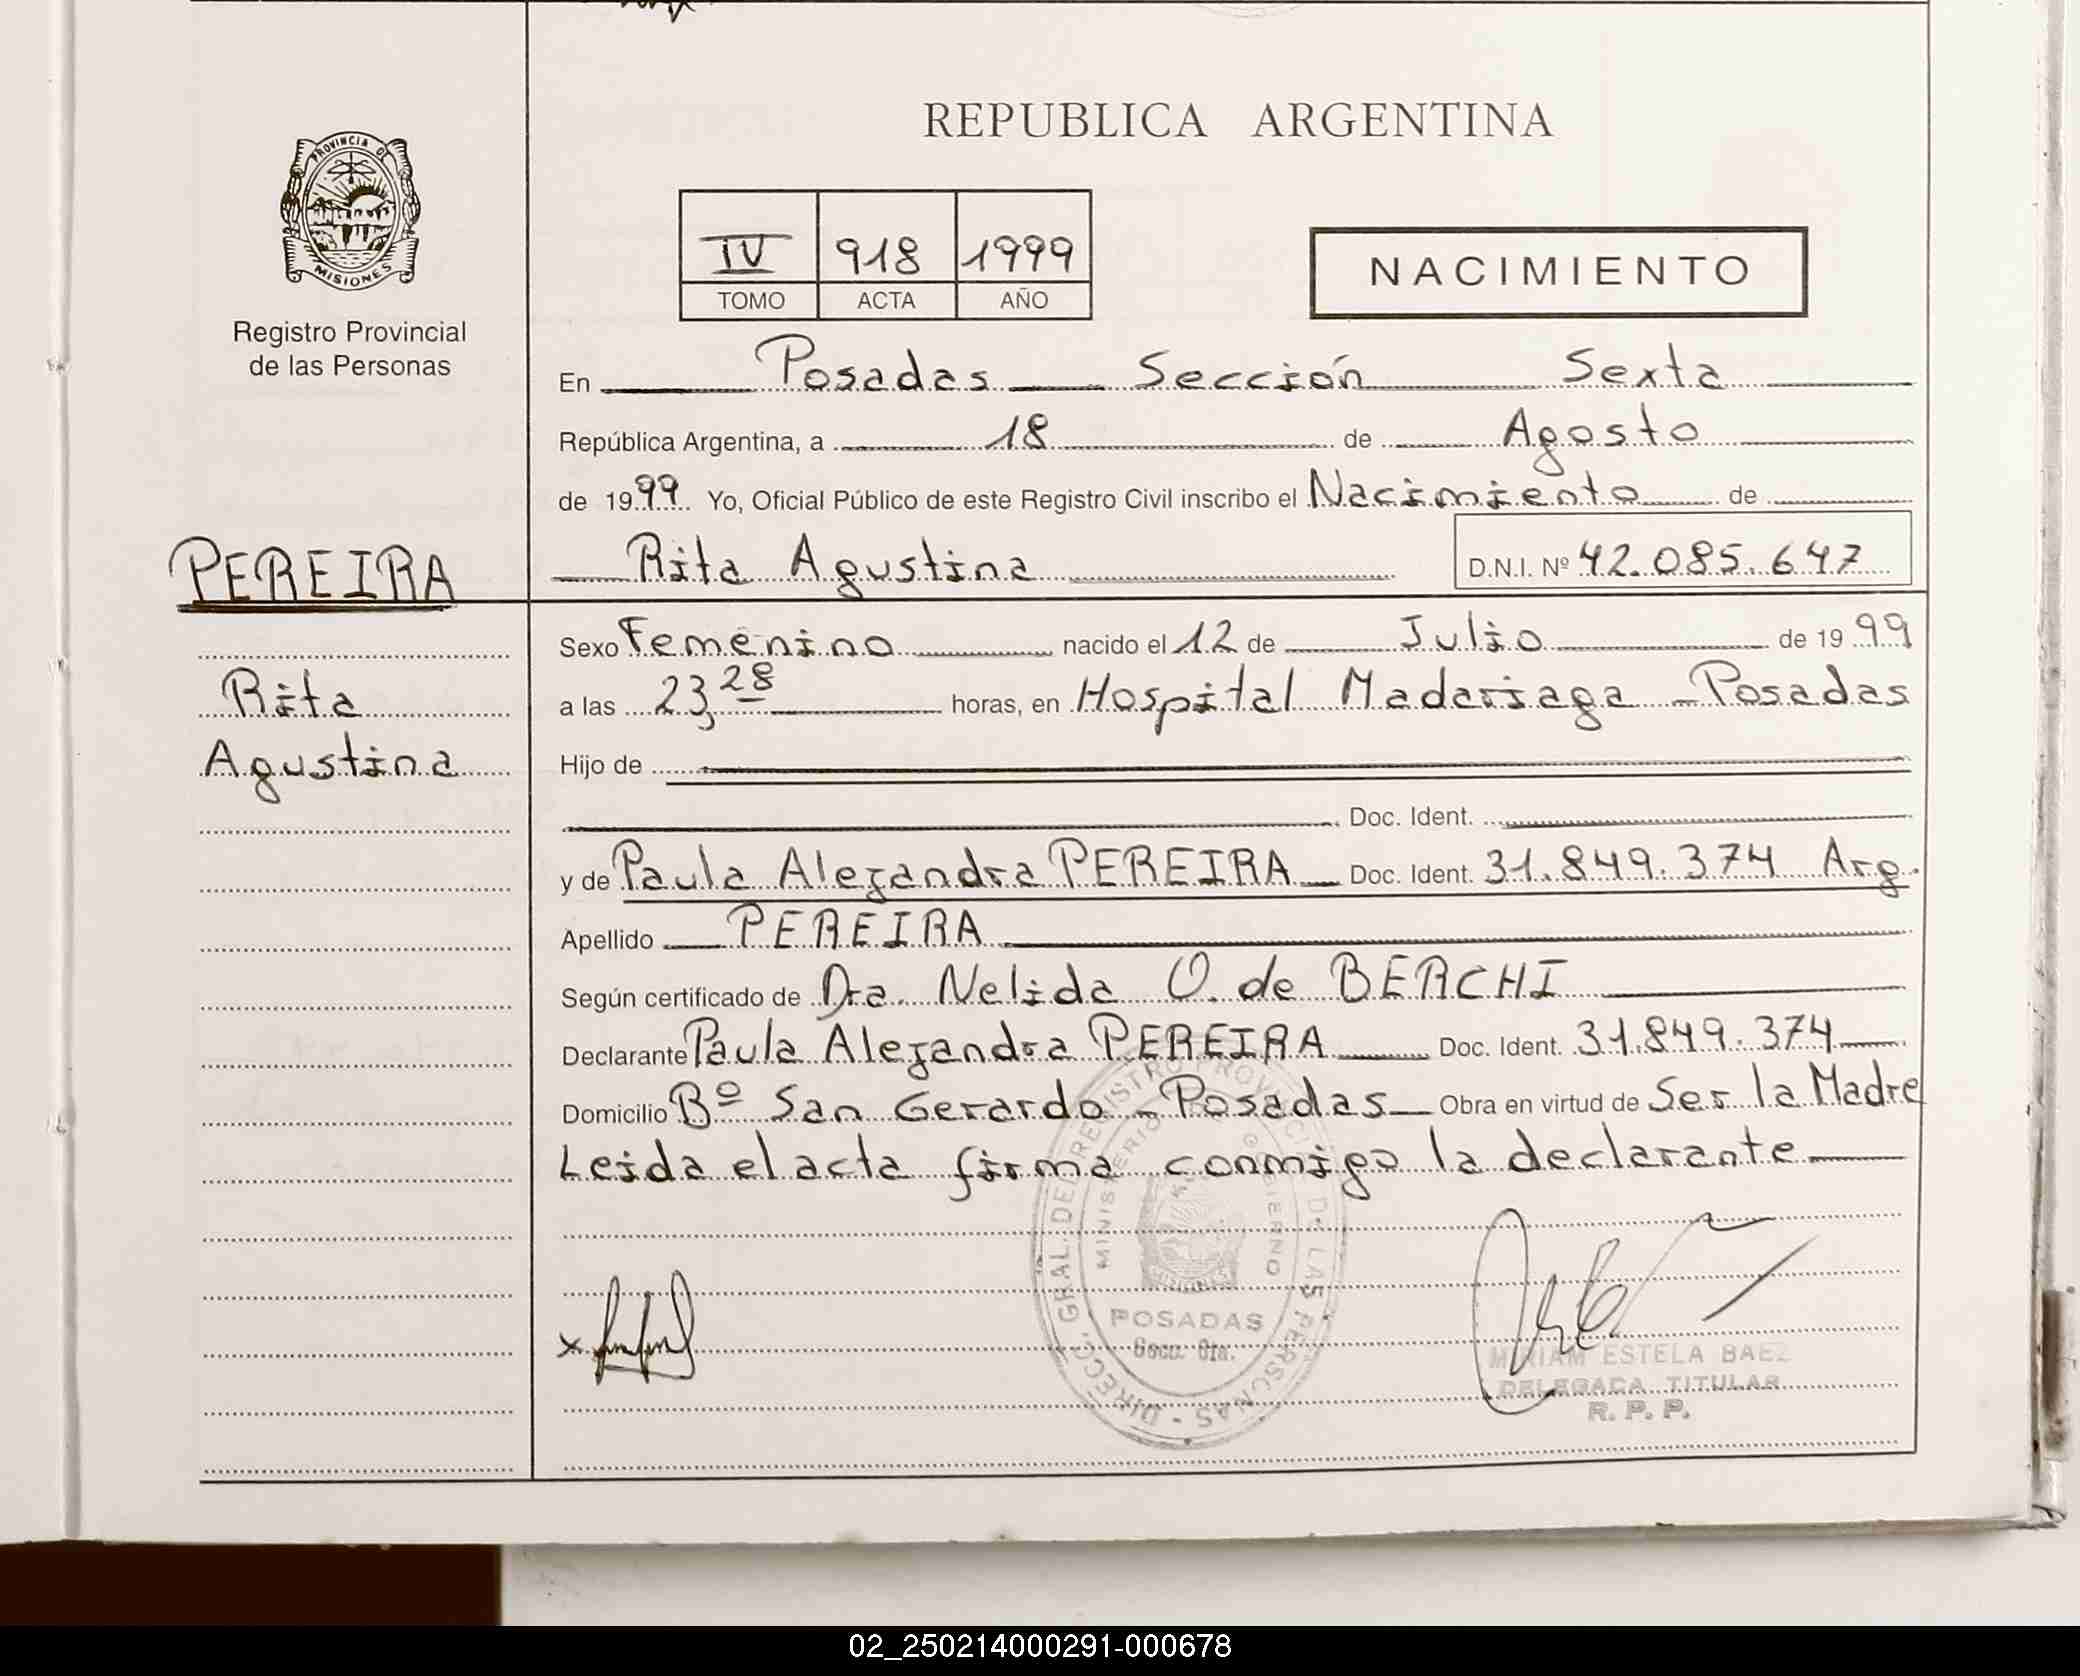 REPUBLICA ARGENTINA
PROVINCIA DE
MISIONES
Registro Provincial
de las Personas
IV 918 1999
TOMO ACTA AÑO
NACIMIENTO
En Posadas Sección Sexta
República Argentina, a 18 de Agosto
de 1999 Yo, Oficial Público de este Registro Civil inscribo el Nacimiento de
Rita Agustina D.N.I. Nº 42.085.647
PEREIRA
Rita
Agustina
Sexo Femenino nacido el 12 de Julio de 1999
a las 23,28 horas, en Hospital Madariaga - Posadas
Hijo de
Doc. Ident.
y de Paula Alejandra PEREIRA Doc. Ident. 31.849.374 Arg.
Apellido PEREIRA
Según certificado de Dra. Nelida O. de BERCHI
Declarante Paula Alejandra PEREIRA Doc. Ident. 31.849.374
Domicilio Bº San Gerardo - Posadas Obra en virtud de Ser la Madre
Leida el acta firma conmigo la declarante
DIRECC. GRAL. DEL REGISTRO PROVINCIAL DE LAS PERSONAS
MINISTERIO DE GOBIERNO
POSADAS
x
MIRIAM ESTELA BAEZ
DELEGADA TITULAR
R. P. P.
02_250214000291-000678